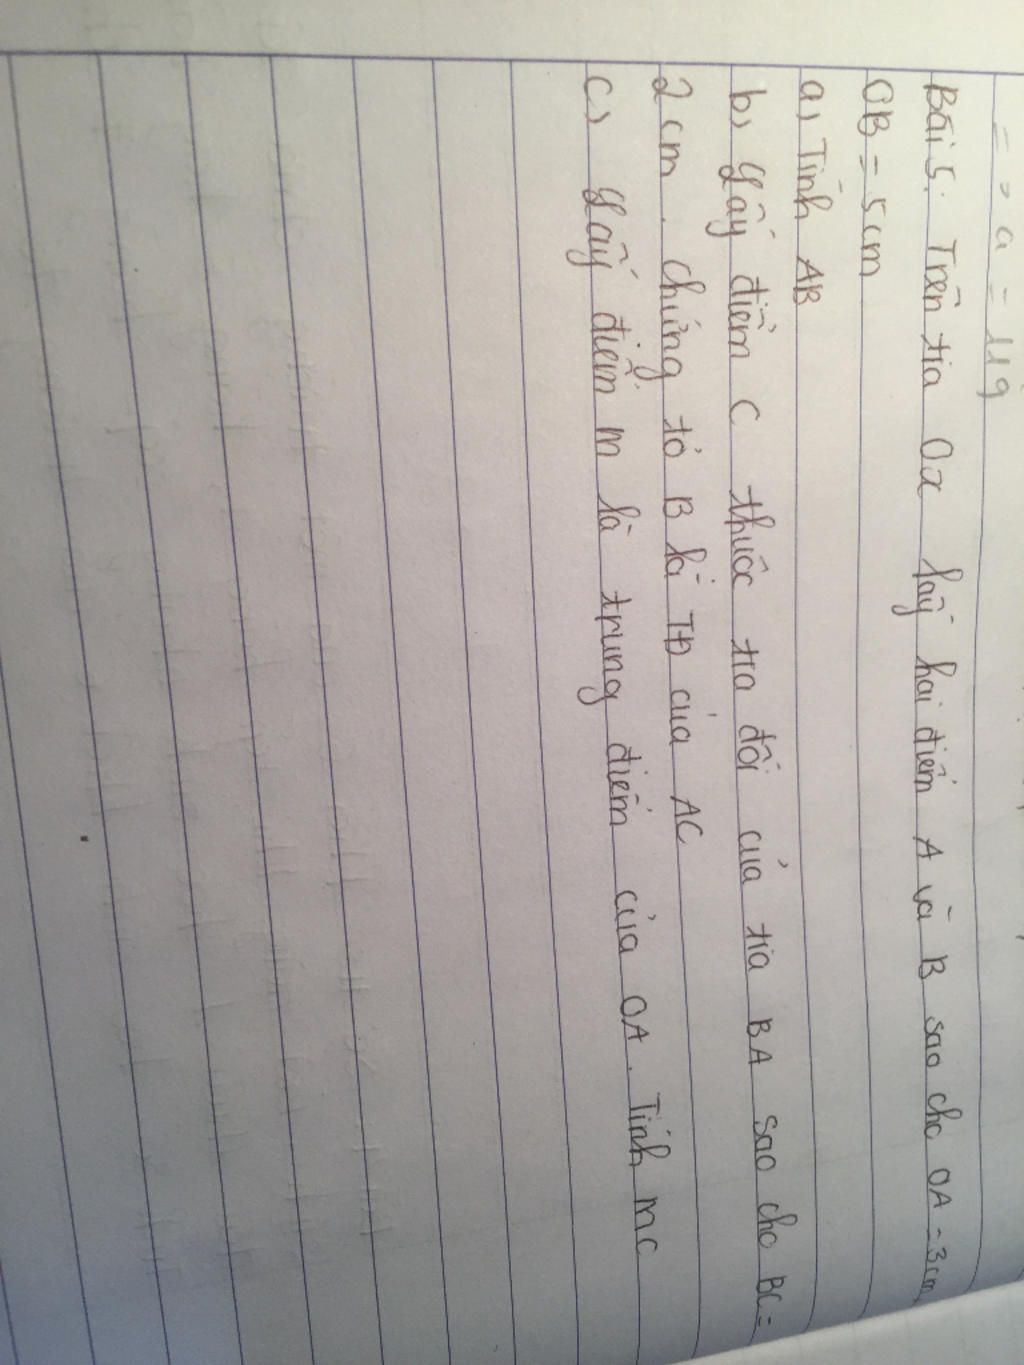 = > a = 119
Bài 5: Trên tia Ox lấy hai điểm A và B sao cho OA = 3cm,
OB = 5cm
a) Tính AB
b) Lấy điểm C thuộc tia đối của tia BA sao cho BC =
2cm. Chứng tỏ B là TĐ của AC
c) Lấy điểm m là trung điểm của OA. Tính mc